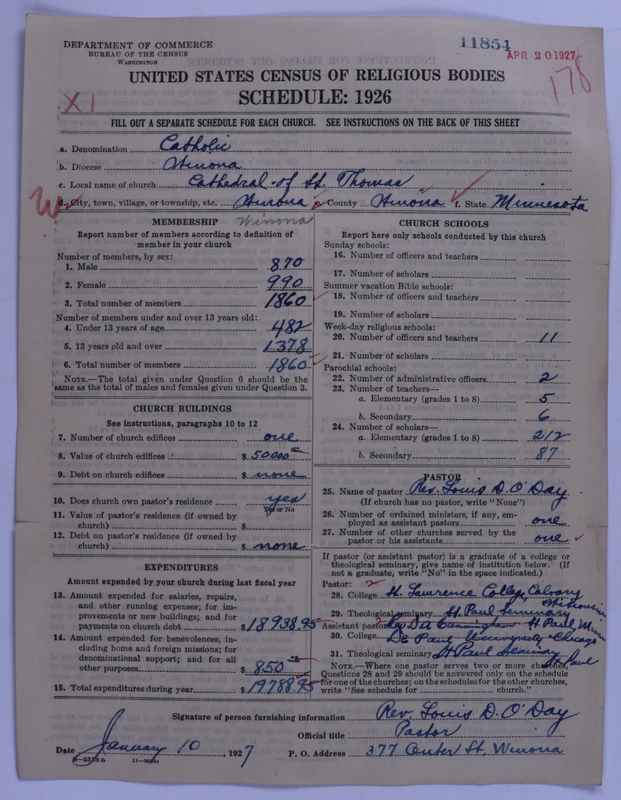 DEPARTMENT OF COMMERCE
BUREAU OF THE CENSUS
WASHINGTON
11854
APR 20 1927
178
UNITED STATES CENSUS OF RELIGIOUS BODIES
SCHEDULE: 1926
X 1
FILL OUT A SEPARATE SCHEDULE FOR EACH CHURCH. SEE INSTRUCTIONS ON THE BACK OF THIS SHEET
a. Denomination Catholic
b. Diocese Winona
c. Local name of church Cathedral of St. Thomas
d. City, town, village, or township, etc. Winona e. County Winona f. State Minnesota
Winona
MEMBERSHIP
Report number of members according to definition of
member in your church
Number of members, by sex:
1. Male 870
2. Female 990
3. Total number of members 1860
Number of members under and over 13 years old:
4. Under 13 years of age 482
5. 13 years old and over 1378
6. Total number of members 1860
NOTE.—The total given under Question 6 should be
same as the total of males and females given under Question 3.
CHURCH BUILDINGS
See instructions, paragraphs 10 to 12
7. Number of church edifices one
8. Value of church edifices $ 50000
9. Debt on church edifices $ none
10. Does church own pastor's residence yes
Yes or No
11. Value of pastor's residence (if owned by
church) $
12. Debt on pastor's residence (if owned by
church) $ none
EXPENDITURES
Amount expended by your church during last fiscal year
13. Amount expended for salaries, repairs,
and other running expenses; for im-
provements or new buildings; and for
payments on church debt $ 18938.95
14. Amount expended for benevolences, in-
cluding home and foreign missions; for
denominational support; and for all
other purposes $ 850
15. Total expenditures during year $ 19788.95
CHURCH SCHOOLS
Report here only schools conducted by this church
Sunday schools:
16. Number of officers and teachers
17. Number of scholars
Summer vacation Bible schools:
18. Number of officers and teachers
19. Number of scholars
Week-day religious schools:
20. Number of officers and teachers 11
21. Number of scholars
Parochial schools:
22. Number of administrative officers 2
23. Number of teachers—
a. Elementary (grades 1 to 8) 5
b. Secondary 6
24. Number of scholars—
a. Elementary (grades 1 to 8) 212
b. Secondary 87
PASTOR
25. Name of pastor Rev. Louis D. O'Day
(If church has no pastor, write "None")
26. Number of ordained ministers, if any, em-
ployed as assistant pastors one
27. Number of other churches served by the
pastor or his assistants one
If pastor (or assistant pastor) is a graduate of a college or
theological seminary, give name of institution below. (If
not a graduate, write "No" in the space indicated.)
Pastor:
28. College St. Lawrence College Calvary
Wisconsin
29. Theological seminary St. Paul Seminary
Assistant pastor: Cunningham St Paul, Minn
30. College De Paul University Chicago
31. Theological seminary St Paul Seminary
St. Paul
NOTE.—Where one pastor serves two or more churches,
Questions 28 and 29 should be answered only on the schedule
for one of the churches; on the schedules for the other churches,
write "See schedule for church."
Signature of person furnishing information Rev. Louis D. O'Day
Official title Pastor
Date January 10, 1927 P. O. Address 377 Center St. Winona